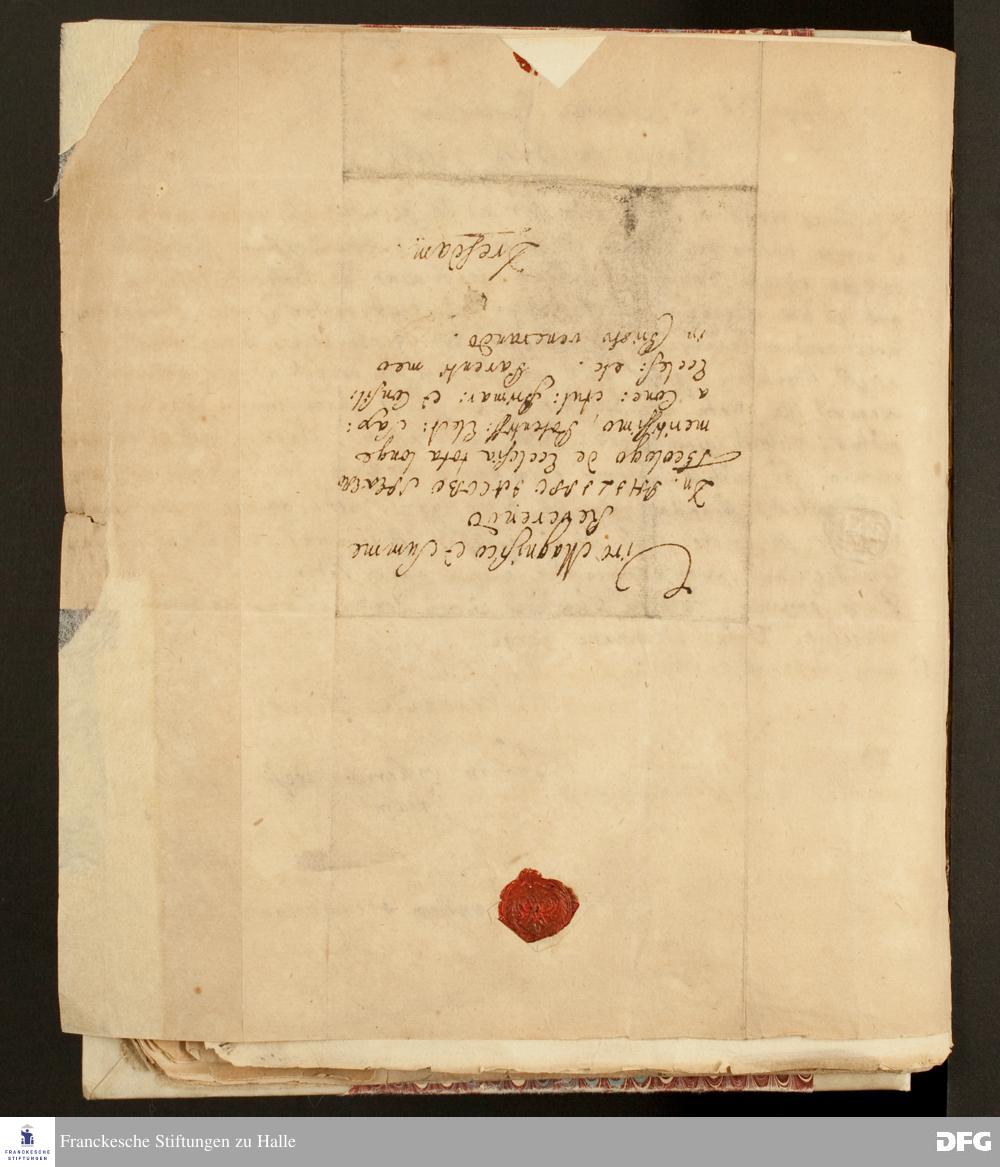 Viro Magnifico & Summe
Reverendo
Dn. PHILIPPO JACOBO SPENERO
Theologo de Ecclesia tota longe
meritissimo, Potentiss: Elect: Sax:
a Conc: aul: primar: & Consil:
Eccles: etc. Parenti meo
in Christo venerando.
Dresdam.
Franckesche Stiftungen zu Halle
FRANCKESCHE
STIFTUNGEN
DFG